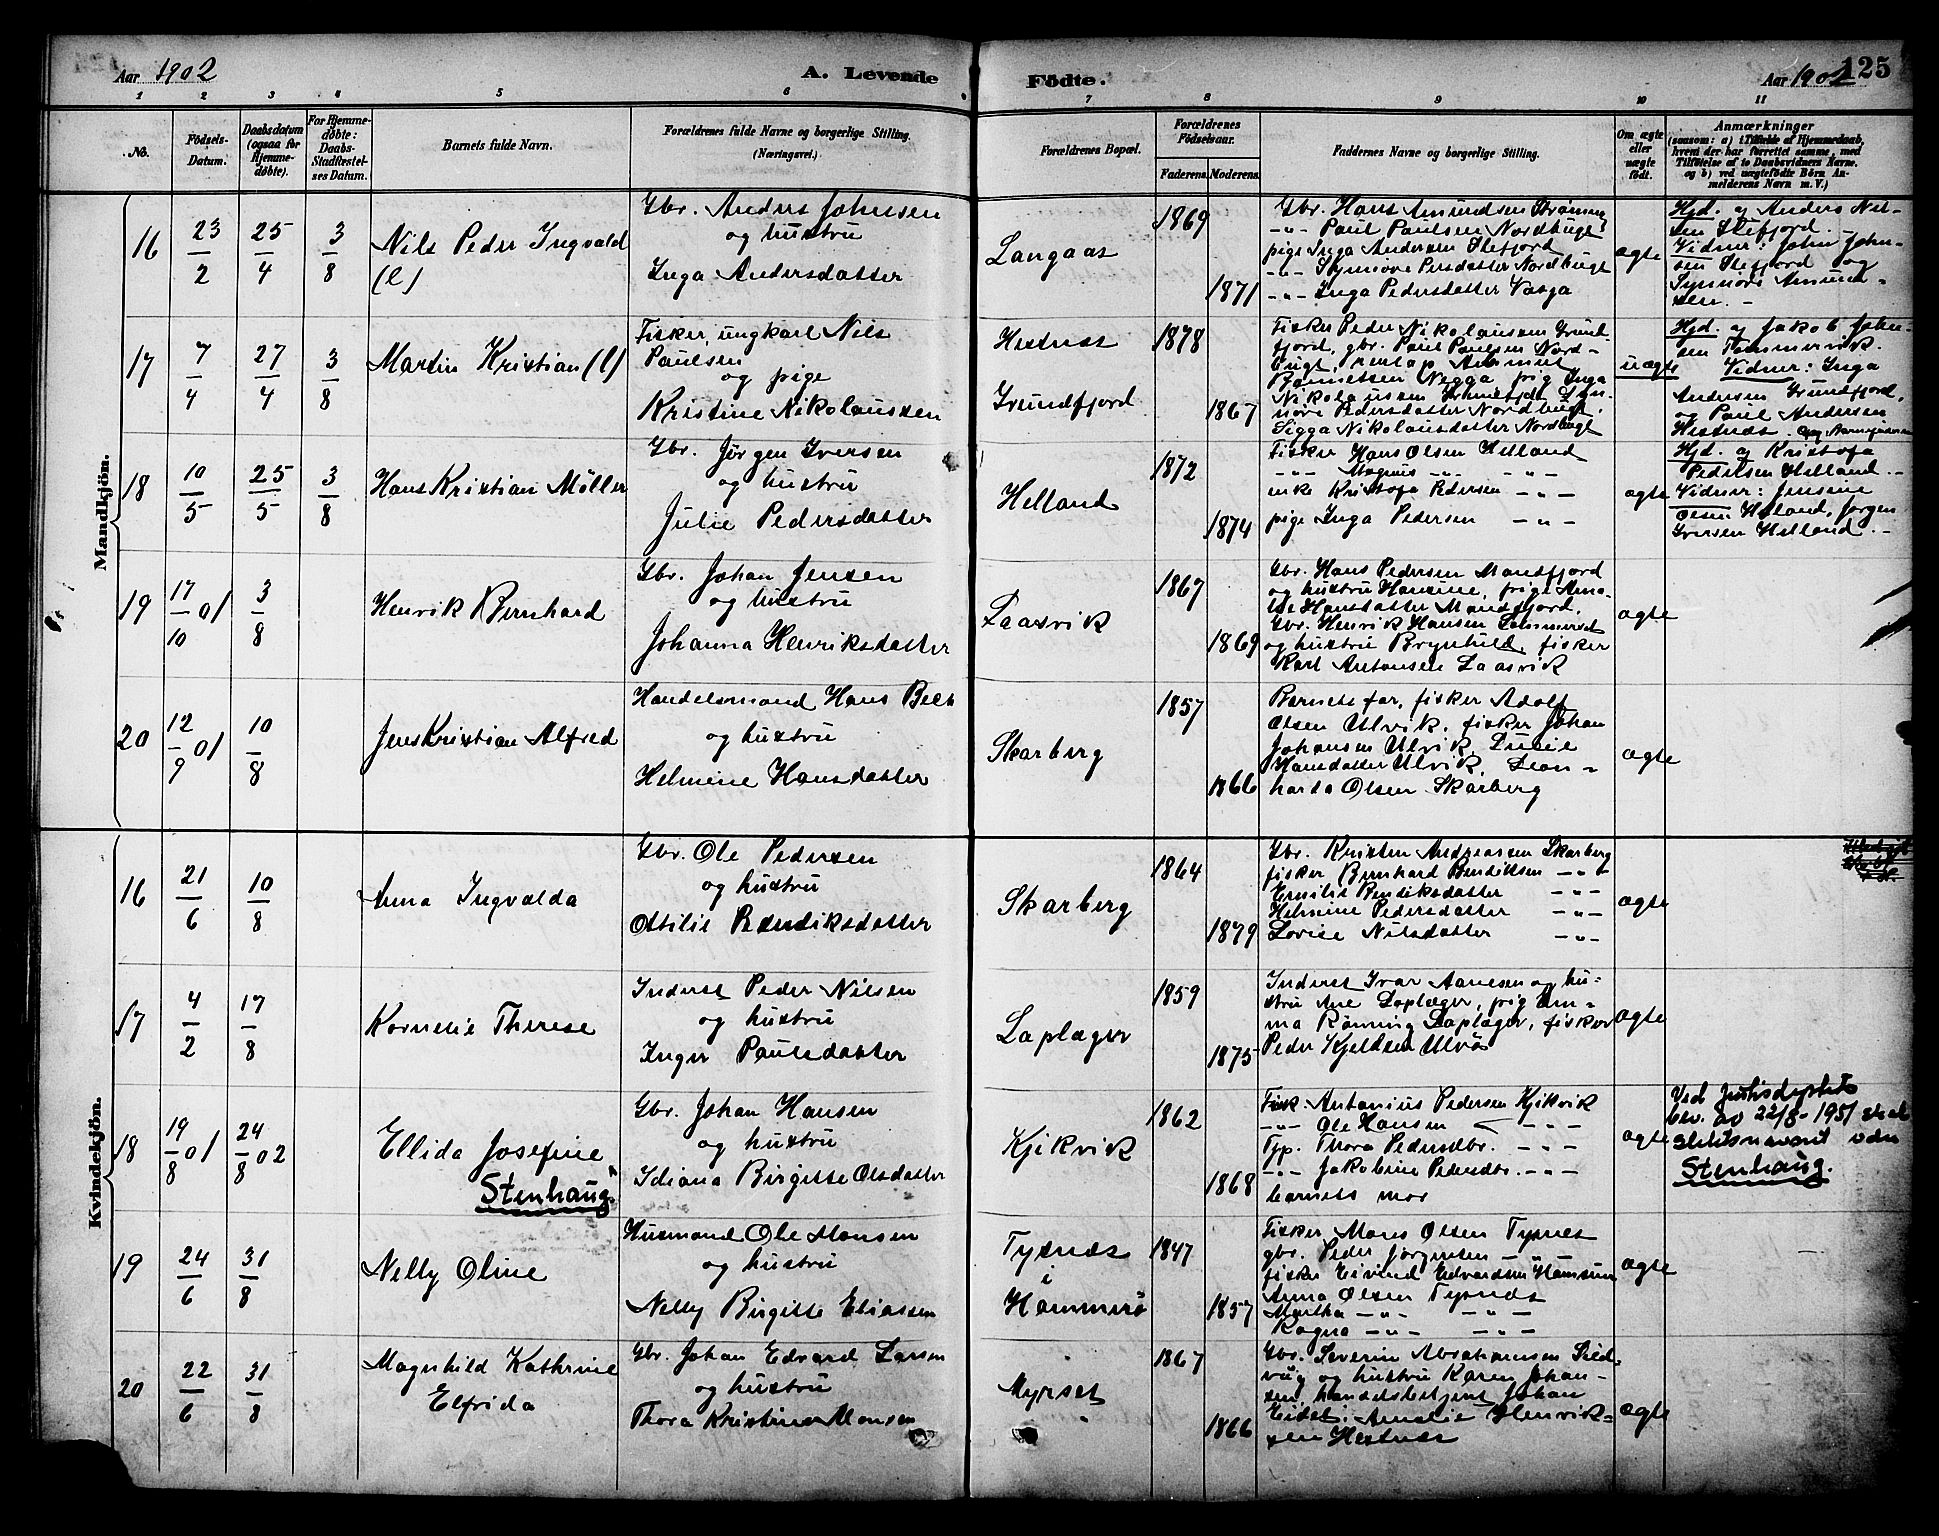 Aar 1902
A. Levende
Födte.
Aar 1902
125
1 2 3 4 5 6 6 7 8 9 10 11
No.
Födsels-Datum.
Daabsdatum (ogsaa for Hjemmedøbte).
For Hjemmedøbte: Daabs-Stadfæstelses Datum.
Barnets fulde Navn.
Forældrenes fulde Navne og borgerlige Stilling. (Næringsvei.)
Forældrenes Bopæl.
Forældrenes Födselsaar.
Faderens. Moderens.
Faddernes Navne og borgerlige Stilling.
Om ægte eller uægte födt.
Anmærkninger
(saasom: a) i Tilfælde af Hjemmedaab, hvem der har forrettet samme, med Tilföielse af to Daabsvidners Navne, og b) ved uægtefödte Börn Anmelderens Navn m. V.)
Mandkjön.
16
23/2
25/4
3/8
Nils Peder Ingvald
(l)
Gbr. Anders Johnsen
og hustru
Inga Andersdatter
Langaas
1869
1871
Gbr. Hans Amundsen
-"- Paul Paulsen Nordbugt
pige Inga Andersen Stefjord
-"- Synnöve Persdatter Nordbugt
-"- Inga Pedersdatter
ægte
Hjd. og Anders Nil-
sen Stefjord. -
Vidner: John John-
sen Stefjord og
Synnöve Amund-
sen. -
17
7/4
27/4
3/8
Martin Kristian (l)
Fisker, ungkarl Nils
Paulsen
og pige
Kristine Nikolaussen
Hestnes
Grundfjord
1878
1867
Fisker Peder Nikolaussen Grund-
fjord, gbr. Paul Paulsen Nord-
bugt,
pig Inga
Nikolaussen
növe Pedersdatter Nordbugt,
Sigga Nikolausdatter Nordbugt
uægte
Hjd. og Jakob John-
sen
Vidner: Inga
Andersen Grundfjord,
og Paul Andersen
Hestnes.
18
10/5
25/5
3/8
Hans Kristian Möller
Gbr. Jörgen Iversen
og hustru
Julie Pedersdatter
Helland
1872
1874
Fisker Hans Olsen Helland
-"- Magnus -"- -"-
enke Kristofa Pedersen -"-
pige Inga Pedersen -"-
ægte
Hjd. og Kristofa
Pedersen Helland. -
Vidner: Jensine
Olsen Helland, Jörgen
Iversen Helland. -
19
17/10 01
3/8
Henrik Bernhard
Gbr. Johan Jensen
og hustru
Johanna Henriksdatter
Laasvik
1867
1869
Gbr. Hans Pedersen Mandfjord
og hustru Hansine, pige Ama-
lie Hansdatter Mandfjord,
Gbr. Henrik Hansen
og hustru Brynhild, fisker
Karl Antonsen Laasvik
ægte
20
12/9 01
10/8
Jens Kristian Alfred
Handelsmand Hans Beck
og hustru
Helmine Hansdatter
Skarberg
1857
1866
Barnets far, fisker Adolf
Olsen Ulvik, fisker Johan
Johansen Ulvik,
Hansdatter Ulvik, Leon-
harda Olsen Skarberg
ægte
Kvindekjön.
16
21/6
10/8
Anna Ingvalda
Gbr. Ole Pedersen
og hustru
Ottilie Bendiksdatter
Skarberg
1864
1879
Gbr. Kristen Andreassen Skarberg
fisker Bernhard Bendiksen -"-
Emilie Bendiksdatter -"-
Helmine Pedersdatter -"-
Lovise Nilsdatter -"-
ægte
17
4/2
17/8
Kornelie Therese
Inderst Peder Nilsen
og hustru
Inger Paulsdatter
Laplæger
1859
1875
Inderst Ivar Aanesen og hu-
stru Ane Laplæger, pig Em-
ma Rönning Laplæger, fisker
Peder Kjeldsen Ulvös
ægte
18
19/8 01
24/8 02
Ellida Josefine
Stenhaug
Gbr. Johan Hansen
og hustru
Idiana Birgitte Olsdatter
Kjikvik
1862
1868
Fisk. Antonius Pedersen Kjikvik
-"- Ole Hansen -"-
Typ. Thora Pedersdtr. -"-
-"- Jakobine Pedersdtr. -"-
barnets mor
ægte
Ved Justisdeptets
bev. av 22/8-1951 skal
slektsnavnet være
Stenhaug.
19
24/6
31/8
Nelly Oline
Husmand Ole Monsen
og hustru
Nelly Birgitte Eliassen
Tysnes
i
Hammerö
1847
1857
Fisker Mons Olsen Tysnes
gbr. Peder Jörgensen -"-
fisker Eivind Edvardsen Hamsund
Anna Olsen Tysnes
Martha -"- -"-
Ragna -"- -"-
ægte
20
22/6
31/8
Magnhild Kathrine
Elfrida
Gbr. Johan Edvard Larsen
og hustru
Thora Kristine Monsen
Myrset
1867
1866
Gbr. Severin Abrahamsen Sild-
vug og hustru Karen Johan-
sen, handelsbetjent Johan
Eidet, Amalie Henrik-
sen Hestnes
ægte